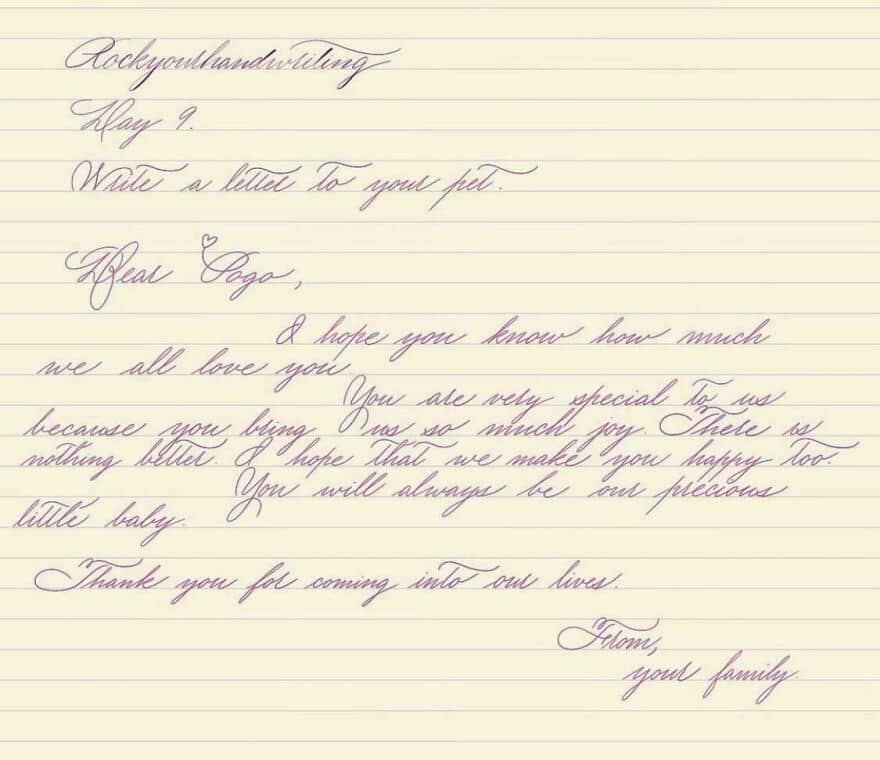 Rockyourhandwriting
Day 9.
Write a letter to your pet.
Dear Pogo,
I hope you know how much
we all love you.
You are very special to us
because you bring us so much joy. There is
nothing better. I hope that we make you happy too.
You will always be our precious
little baby.
Thank you for coming into our lives.
From,
your family